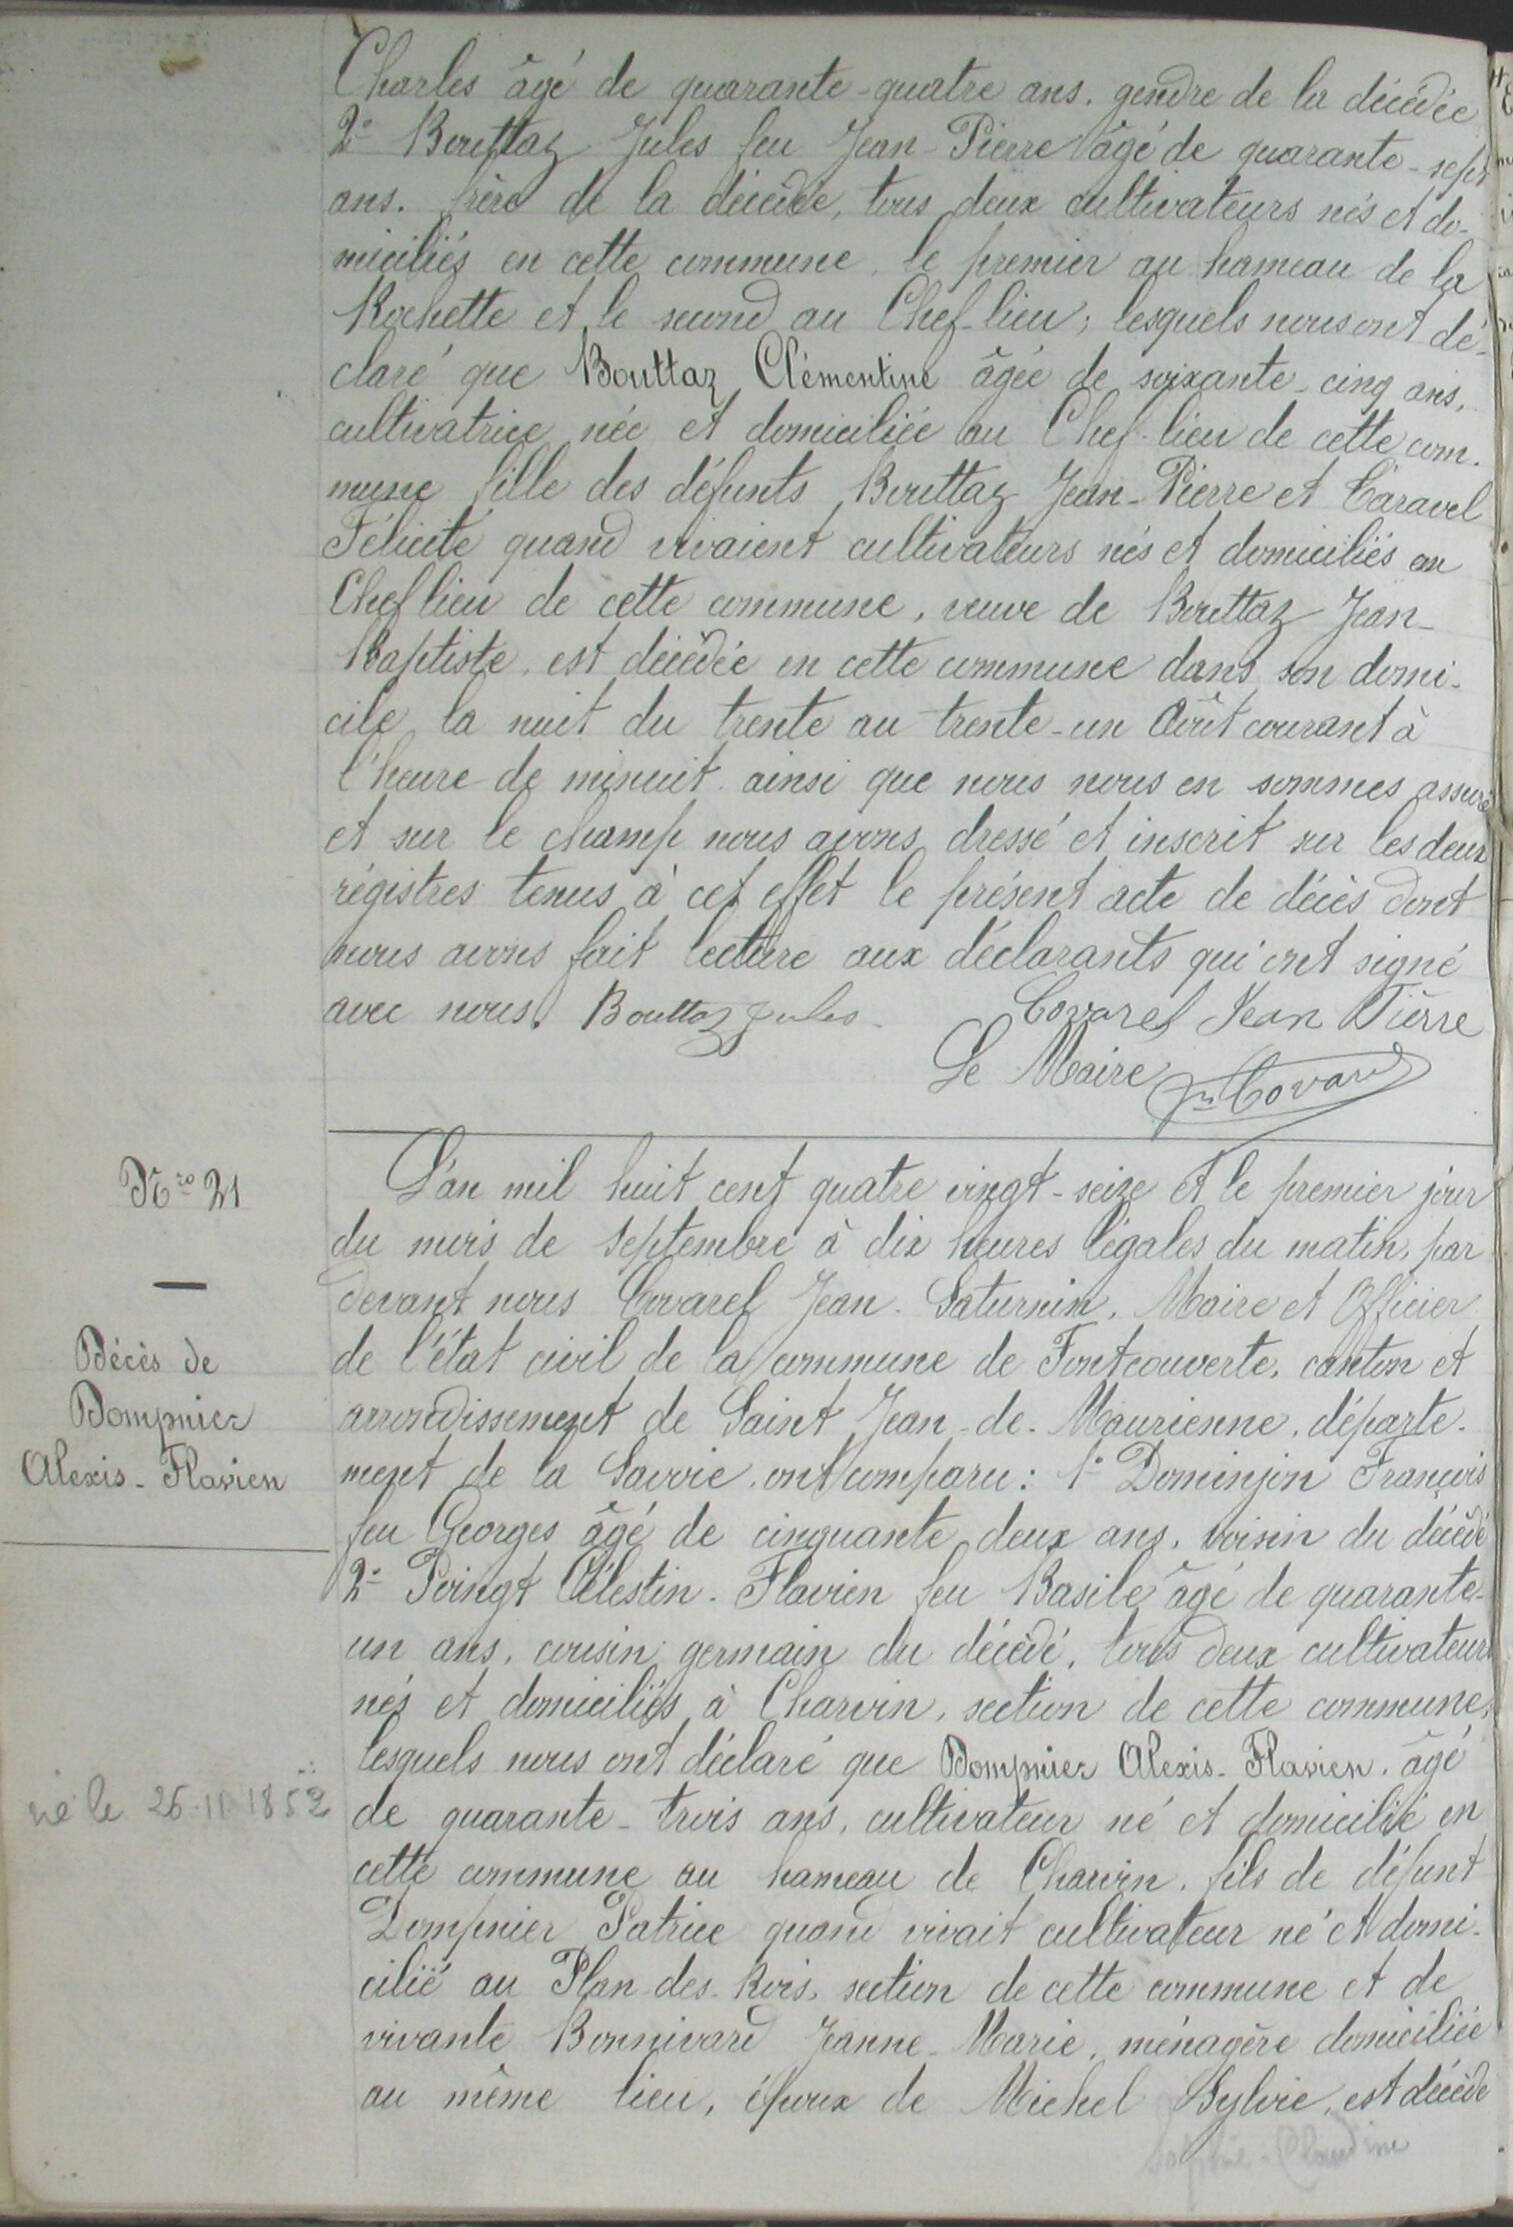 Charles âgé de quarante-quatre ans. gendre de la décédée
2° Bouttaz Jules feu Jean-Pierre âgé de quarante-sept
ans. frère de la décédée, tous deux cultivateurs nés et do-
miciliés en cette commune, le premier au hameau de la
Rochette et le second au Chef-lieu; lesquels nous ont dé-
claré que Bouttaz Clémentine âgée de soixante-cinq ans,
cultivatrice née et domiciliée au Chef-lieu de cette com-
mune fille des défunts Bouttaz Jean-Pierre et Caravel
Félicité quand vivaient cultivateurs nés et domiciliés au
Chef lieu de cette commune, veuve de Bouttaz Jean-
Baptiste, est décédée en cette commune dans son domi-
cile la nuit du trente au trente-un Août courant à
l'heure de minuit. ainsi que nous nous en sommes assuré
et sur le champ nous avons dressé et inscrit sur les deux
régistres tenus à cet effet le présent acte de décès dont
nous avons fait lecture aux déclarants qui ont signé
avec nous. Bouttaz Jules. Covarel Jean Pierre
Le Maire Jn Covarel
Nro 21
Décès de
Dompnier
Alexis-Flavien
L'an mil huit cent quatre vingt-seize et le premier jour
du mois de Septembre à dix heures légales du matin, par
devant nous Covarel Jean-Saturnin, Maire et Officier
de l'état civil de la commune de Fontcouverte, canton et
arrondissement de Saint Jean-de-Maurienne, départe-
ment de la Savoie, ont comparu: 1° Dominjon François
feu Georges âgé de cinquante deux ans, voisin du décédé
2° Poingt Célestin-Flavien feu Basile âgé de quarante-
un ans, cousin germain du décédé, tous deux cultivateurs
nés et domiciliés à Charvin, section de cette commune,
lesquels nous ont déclaré que Dompnier Alexis-Flavien, âgé
né le 26-11-1852
de quarante-trois ans, cultivateur né et domicilié en
cette commune au hameau de Charvin, fils de défunt
Dompnier Patrice quand vivait cultivateur né et domi-
cilié au Plan-des-Rois, section de cette commune et de
vivante Bonnivard Jeanne-Marie, ménagère domiciliée
au même lieu, époux de Michel Sylvie, est décédé
Sophie-Claudine